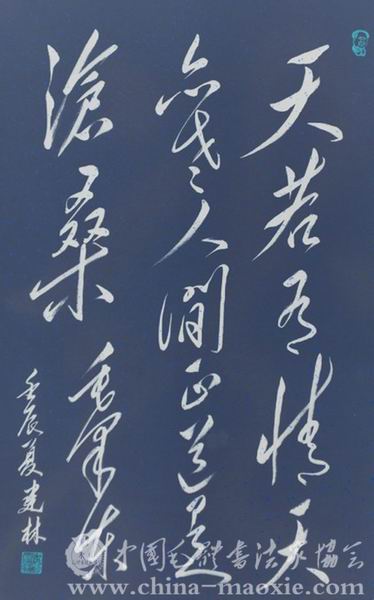 天若有情天
亦老人間正道是
滄桑 毛澤東
壬辰夏 建林
中國毛體書法家協会
www.china-maoxie.com